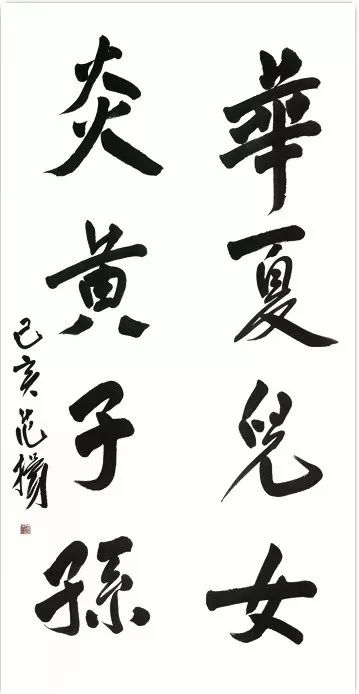 華夏兒女
炎黃子孫
己亥范揚